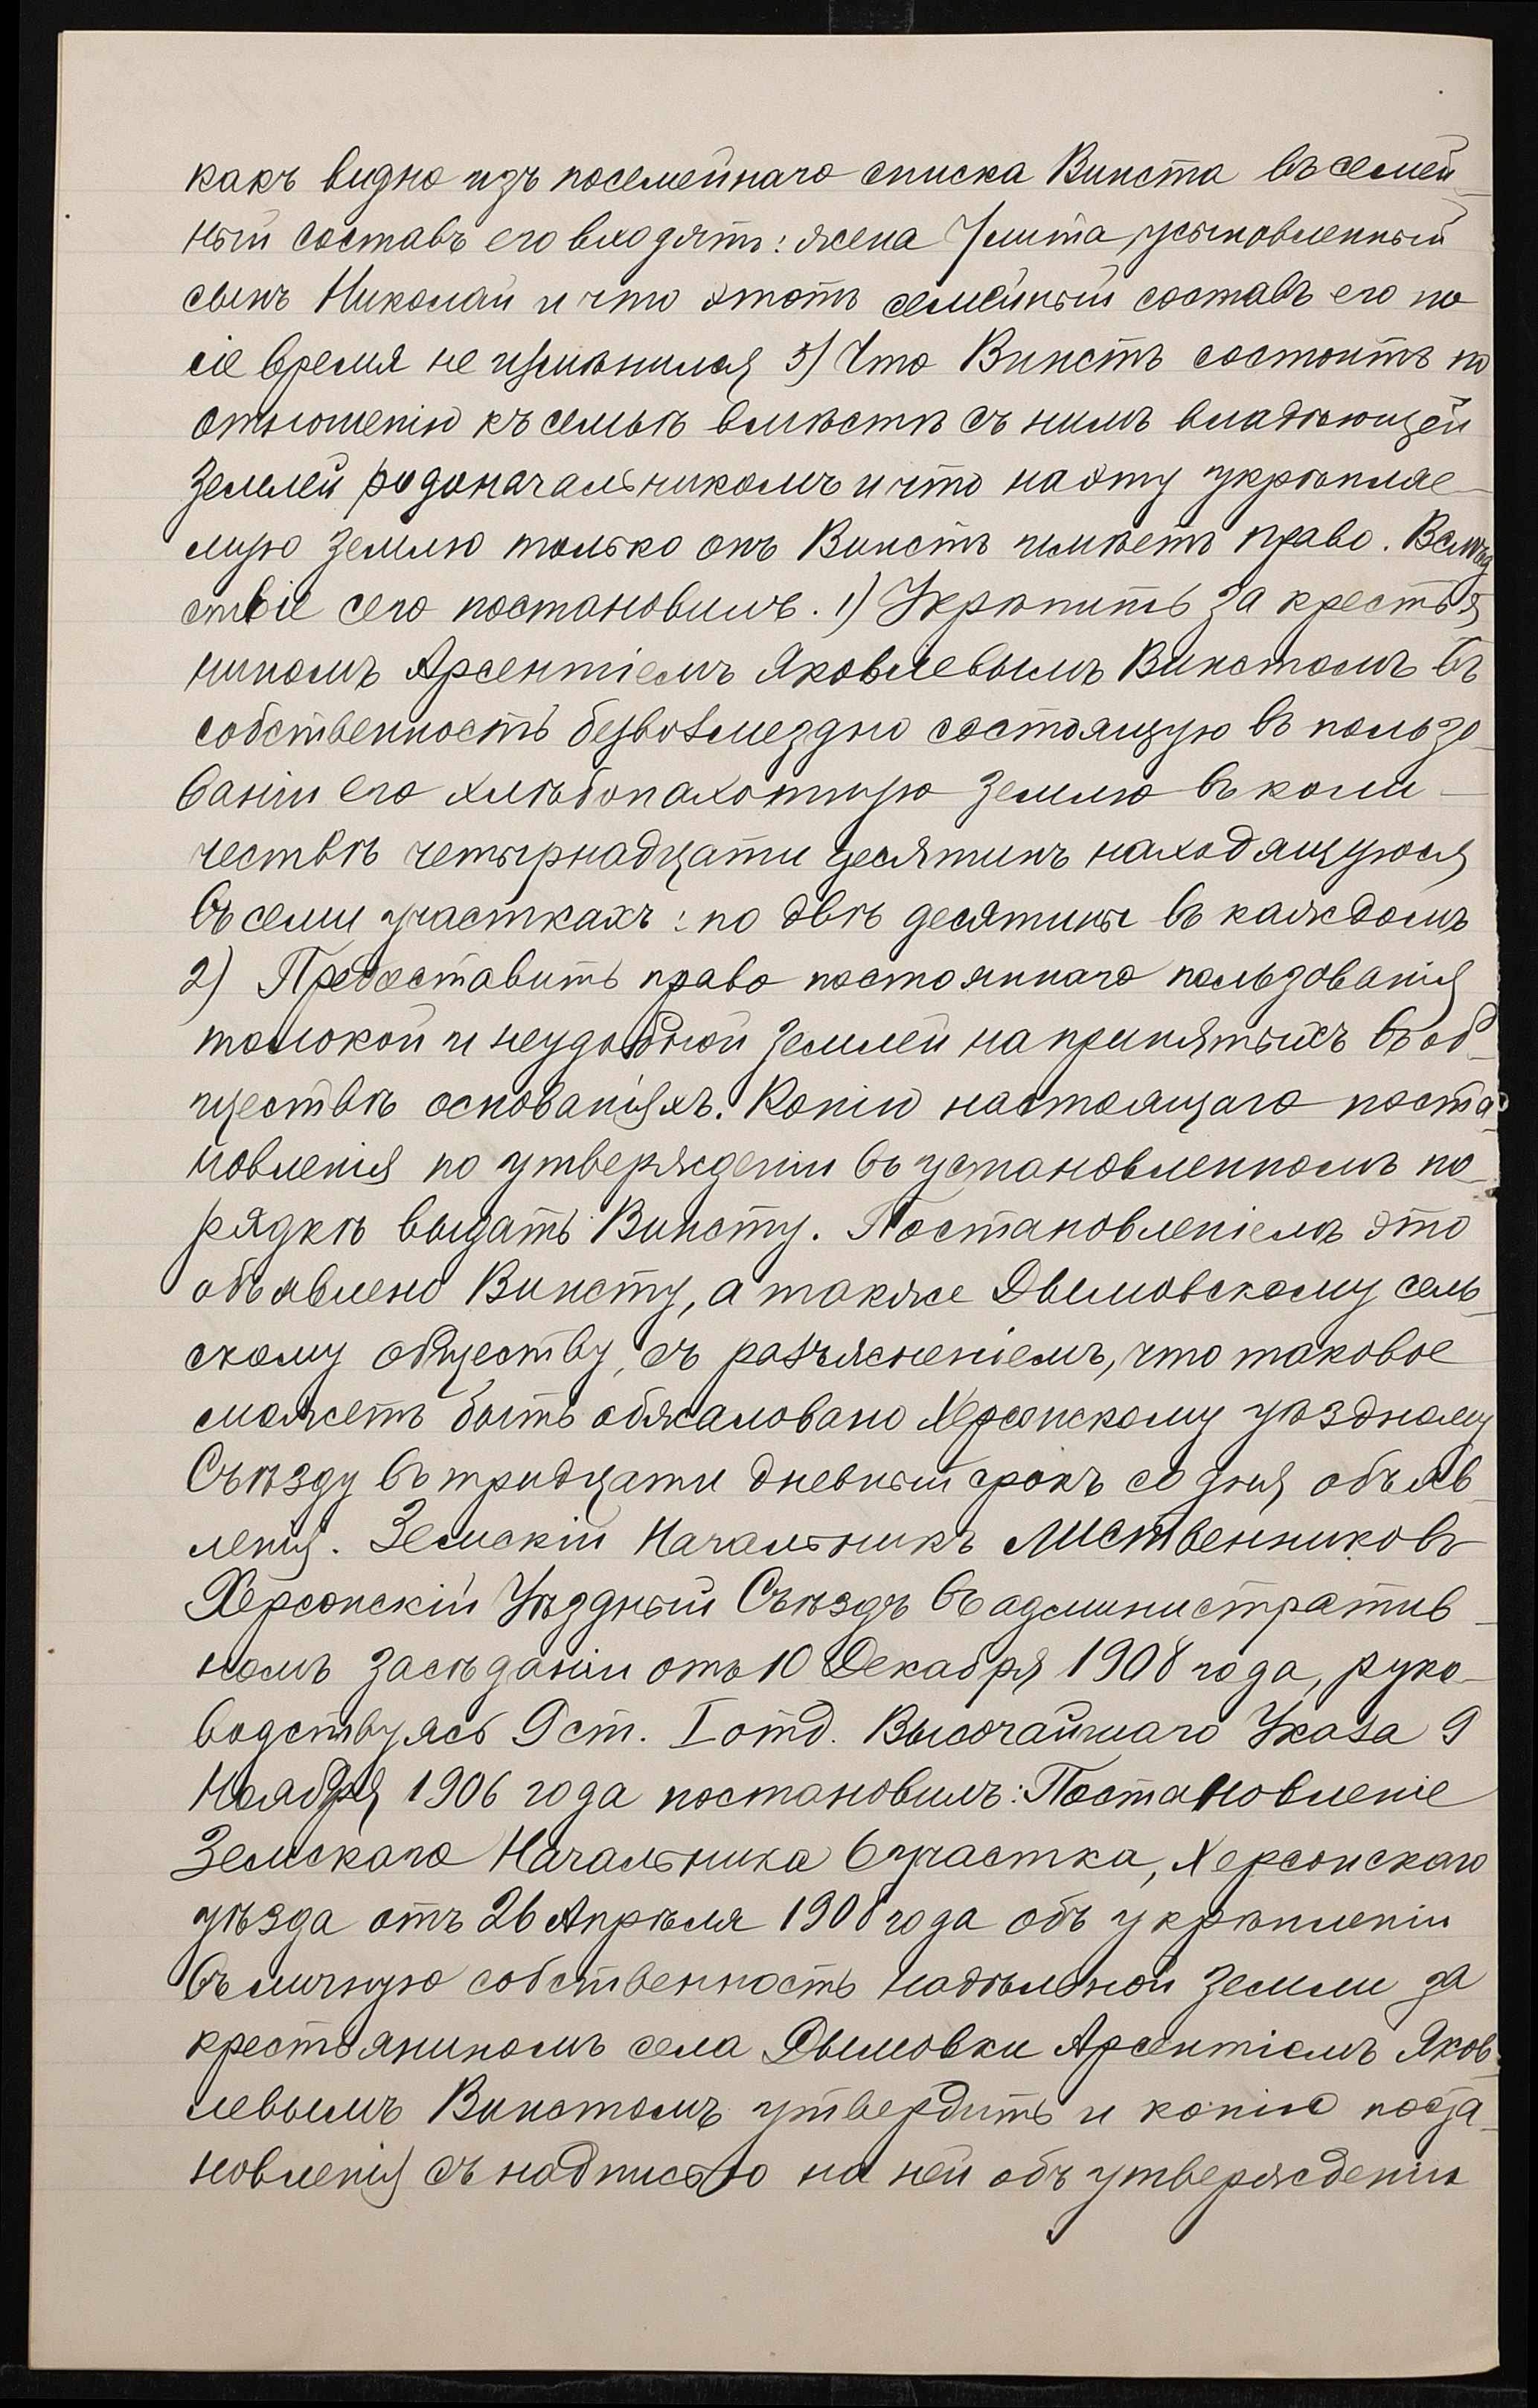 какъ видно изъ посемейнаго списка Винста въ семей-
ный составъ его входятъ: жена Улита, усыновленный
сынъ Николай и что этотъ семейный составъ его по
сіе время не измѣнился 5) Что Винстъ состоитъ по
отношенію къ семьѣ вмѣстѣ съ нимъ владѣющей
землей родоначальникомъ и что на эту укрѣпляе-
мую землю только онъ Винстъ имѣетъ право. Вслѣд
ствіе сего постановилъ. 1) Укрѣпить за крестья
ниномъ Арсентіемъ Яковлевымъ Винстомъ въ
собственность безвозмездно состоящую въ пользо-
ваніи его хлѣбопахотную землю въ коли-
чествѣ четырнадцати десятинъ находящуюся
въ семи участкахъ: по двѣ десятины въ каждомъ
2) Предоставить право постояннаго пользованія
толокой и неудобной землей на принятыхъ въ об-
ществѣ основаніяхъ. Копію настоящаго поста-
новленія по утвержденіи въ установленномъ по-
рядкѣ выдать Винсту. Постановленіемъ это
объявлено Винсту, а также Дымовскому сель-
скому обществу, съ разъясненіемъ, что таковое
можетъ быть обжаловано Херсонскому уѣздному
Съѣзду въ тридцати дневный срокъ со дня объяв-
ленія. Земскій Начальникъ Лиственниковъ
Херсонскій Уѣздный Съѣздъ въ административ-
номъ засѣданіи отъ 10 Декабря 1908 года, руко-
водствуясь 9 ст. I отд. Высочайшаго Указа 9
Ноября 1906 года постановилъ: Постановленіе
Земскаго Начальника 6 участка, Херсонскаго
уѣзда отъ 26 Апрѣля 1908 года объ укрѣпленіи
въ личную собственность надѣльной земли за
крестьяниномъ села Дымовки Арсентіемъ Яков-
левымъ Винстомъ утвердить и копію поста-
новленія съ надписью на ней объ утвержденіи